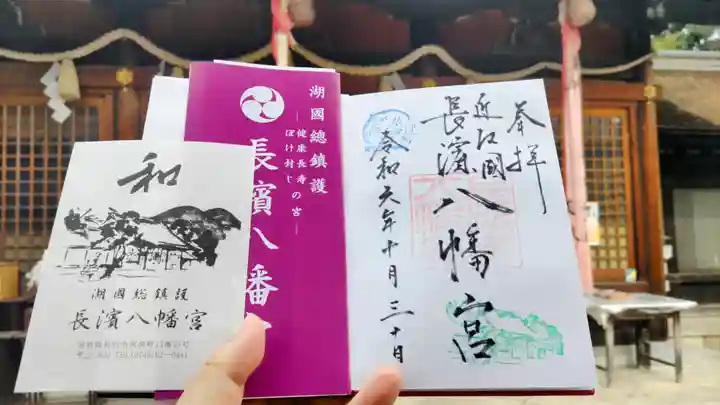 奉拝
近江國
長濱八幡宮
令和六年十月三十日
湖國總鎮護
―健康長寿の宮―
ぼけ封じ
長濱八番
和
湖國総鎮護
長濱八幡宮